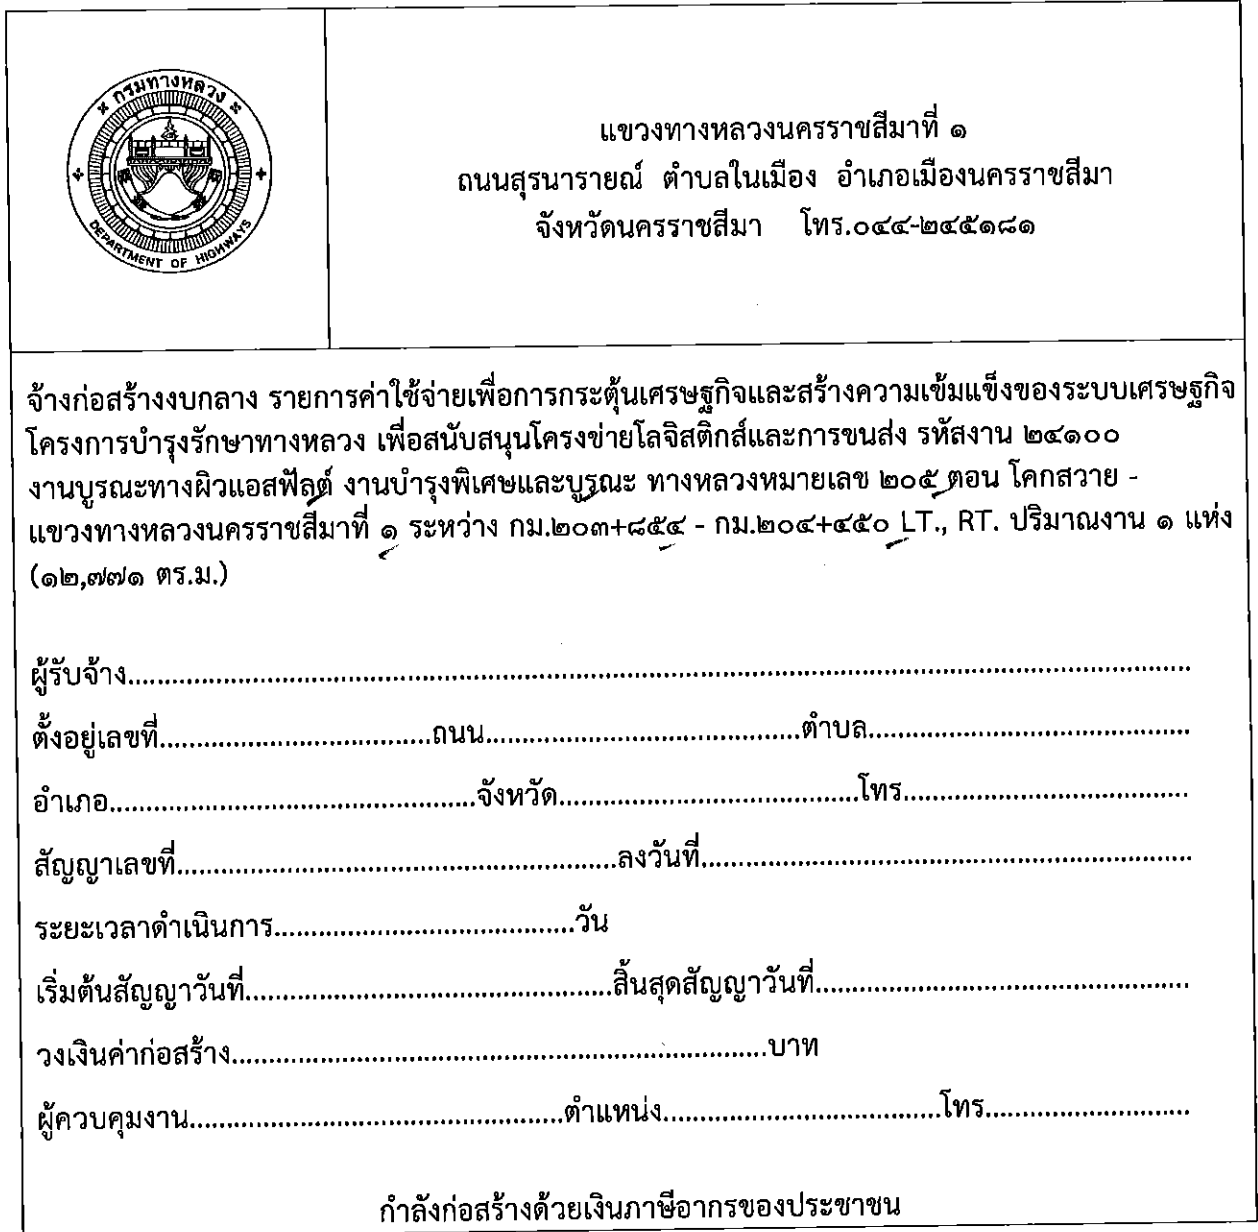 กรมทางหลวง
DEPARTMENT OF HIGHWAYS
แขวงทางหลวงนครราชสีมาที่ ๑
ถนนสุรนารายณ์ ตำบลในเมือง อำเภอเมืองนครราชสีมา
จังหวัดนครราชสีมา โทร.๐๔๔-๒๔๕๑๘๑
จ้างก่อสร้างงบกลาง รายการค่าใช้จ่ายเพื่อการกระตุ้นเศรษฐกิจและสร้างความเข้มแข็งของระบบเศรษฐกิจ
โครงการบำรุงรักษาทางหลวง เพื่อสนับสนุนโครงข่ายโลจิสติกส์และการขนส่ง รหัสงาน ๒๔๑๐๐
งานบูรณะทางผิวแอสฟัลต์ งานบำรุงพิเศษและบูรณะ ทางหลวงหมายเลข ๒๐๕ ตอน โคกสวาย -
แขวงทางหลวงนครราชสีมาที่ ๑ ระหว่าง กม.๒๐๓+๘๕๔ - กม.๒๐๔+๔๕๐ LT., RT. ปริมาณงาน ๑ แห่ง
(๑๒,๗๗๑ ตร.ม.)
ผู้รับจ้าง....................................................................................................
ตั้งอยู่เลขที่....................................ถนน..........................................ตำบล...........................................
อำเภอ.................................................จังหวัด........................................โทร......................................
สัญญาเลขที่...........................................................ลงวันที่.................................................................
ระยะเวลาดำเนินการ........................................วัน
เริ่มต้นสัญญาวันที่.................................................สิ้นสุดสัญญาวันที่..................................................
วงเงินค่าก่อสร้าง.......................................................................บาท
ผู้ควบคุมงาน..................................................ตำแหน่ง.....................................โทร...........................
กำลังก่อสร้างด้วยเงินภาษีอากรของประชาชน